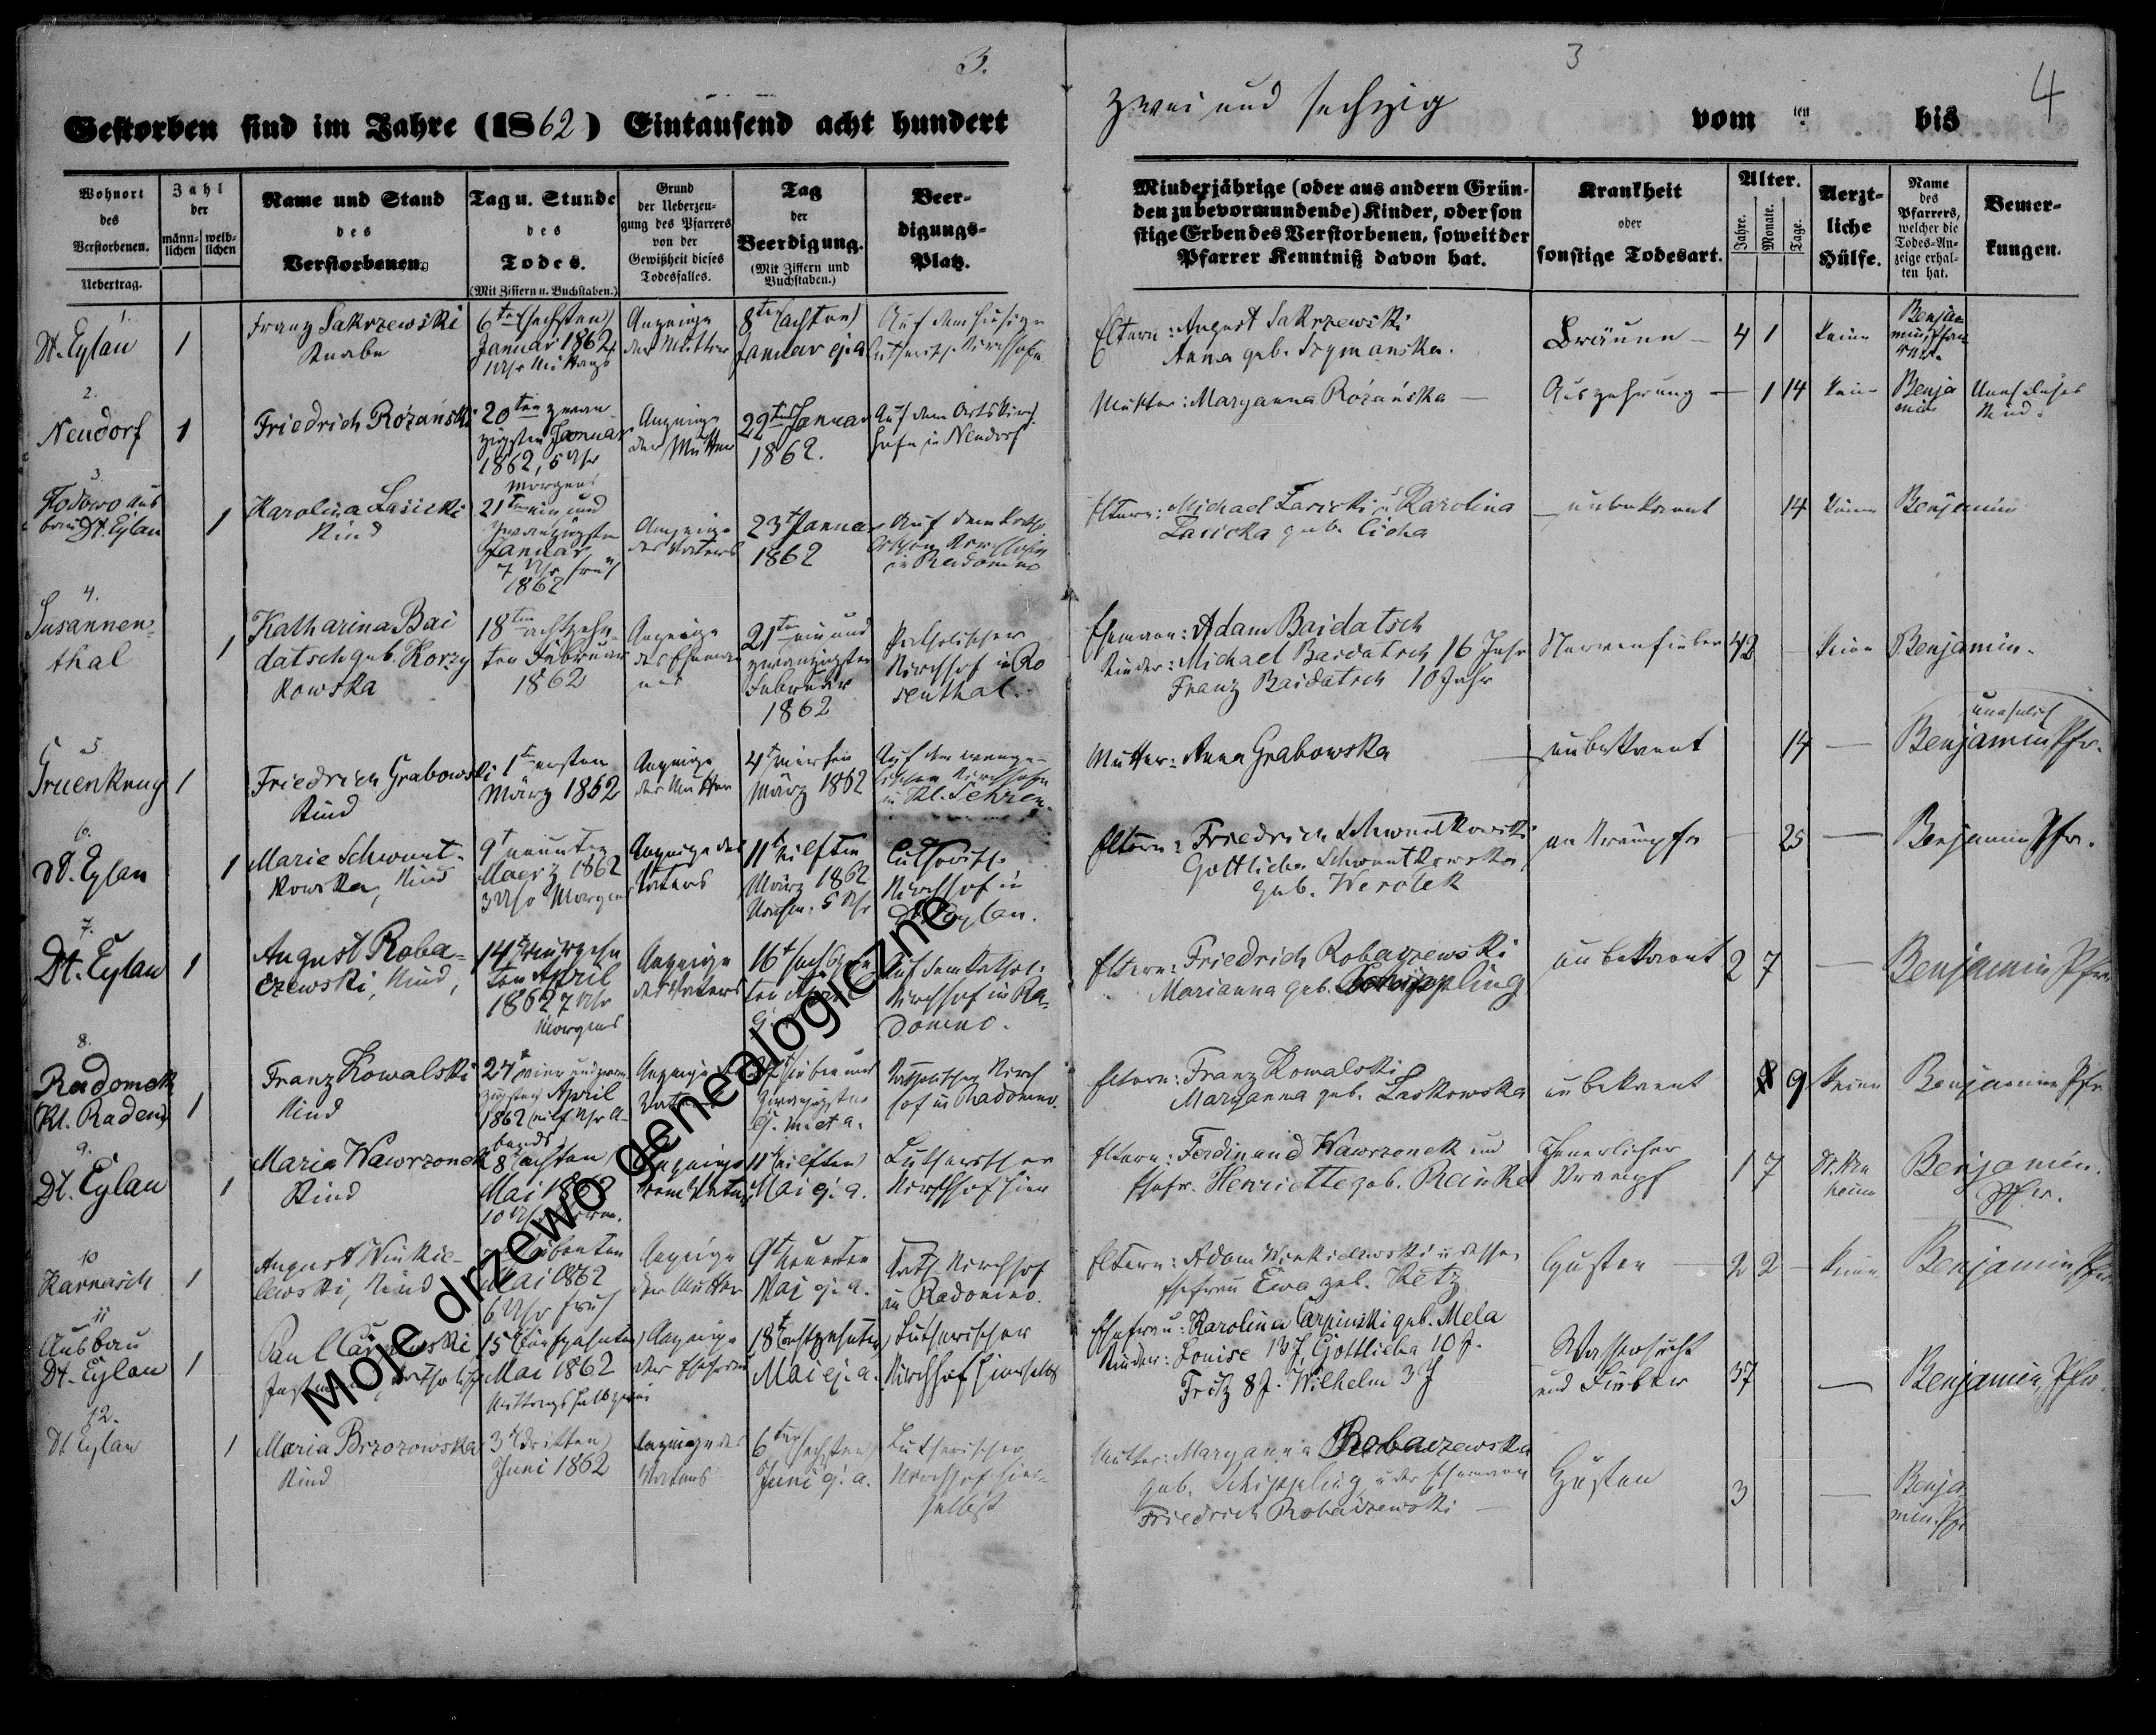 3.
3
4
Gestorben sind im Jahre (1862) Eintausend acht hundert
zwei und sechzig
vom ten bis
Wohnort
des
Verstorbenen.
Uebertrag.
Zahl
der
männ-
lichen
weib-
lichen
Name und Stand
des
Verstorbenen.
Tag u. Stunde
des
Todes.
(Mit Ziffern u. Buchstaben.)
Grund
der Ueberzeu-
gung des Pfarrers
von der
Gewißheit dieses
Todesfalles.
Tag
der
Beerdigung.
(Mit Ziffern und
Buchstaben.)
Beer-
digungs-
Platz.
Minderjährige (oder aus andern Grün-
den zu bevormundende) Kinder, oder son
stige Erben des Verstorbenen, soweit der
Pfarrer Kenntniß davon hat.
Krankheit
oder
sonstige Todesart.
Alter.
Jahre.
Monate.
Tage.
Aerzt-
liche
Hülfe.
Name
des
Pfarrers,
welcher die
Todes-An-
zeige erhal-
ten hat.
Bemer-
kungen.
1.
Dt. Eylau
1
Franz Sakrzewski
Knabe
6ten (sechsten)
Januar 1862
Anzeige
der Mutter
8ten (achten)
Januar ej. a.
Auf dem hiesigen
luther. Kirchhofe
Eltern: August Sakrzewski
Anna geb. Szymanska.
Bräune
4 1
keine
Benja-
min, Pfar-
rer.
2.
Neudorf
1
Friedrich Rózański
20ten zwan-
zigsten Januar
1862, 5 Uhr
Morgens
Anzeige
der Mutter
22ten Januar
1862.
Auf dem Ortskirch
hofe in Neudorf
Mutter: Maryanna Rózańska
Auszehrung
1 14
keine
Benja
min
Uneheliches
Kind.
3.
bau Dt. Eylau
1
Karolina Lasicki
Kind
21ten ein und
zwanzigsten
Januar
7 Uhr früh
1862
Anzeige
des Vaters
23t Januar
1862
Auf dem kath.
in Radomno
Eltern: Michael Lasicki u Karolina
Lasicka geb. Cicha
unbekannt
14
keine
Benjamin
4.
Susannen-
thal
1
Katharina Bai
datsch geb. Korzy
kowska
18ten achtzehn-
ten Februar
1862
Anzeige
des Eheman
nes
21ten ein und
zwanzigsten
Februar
1862
Katholischer
Kirchhof in Ro
senthal.
Ehemann: Adam Baidatsch
Kinder: Michael Baidatsch 16 Jahr
Franz Baidatsch 10 Jahr
Nervenfieber
42
keine
Benjamin.
5
Gruenkrug
1
Friedrich Grabowski
Kind
1t ersten
März 1862
Anzeige
der Mutter
4t vierten
März 1862
Auf dem evange-
lischen Kirchhofe
in Kl. Sehren.
Mutter: Anna Grabowska
unbekannt
14
unehelich
Benjamin Pfr.
6.
Dt. Eylau
1
Marie Schwent-
kowska, Kind
9t neunten
Maerz 1862
3 Uhr Morgens
Anzeige des
Vaters
11t eilften
März 1862
Nachm. 5 Uhr
Lutherische
Kirchhof in
Dt. Eylau.
Eltern: Friedrich Schwentkowski
Gottliebe Schwentkowska
geb. Werotek
an Krämpfe
25
Benjamin Pfr.
7.
Dt. Eylau
1
August Roba-
czewski, Kind,
14t vierzehn
ten April
1862 7 Uhr
Morgens
Anzeige
des Vaters
16t sechszehn
ten April
Auf dem kathol.
Kirchhof in Ra-
domno.
Eltern: Friedrich Robaczewski
Marianna geb. Schippling
unbekannt
2 7
Benjamin Pfr
8.
Radomek
(Kl. Radem)
1
Franz Kowalski
Kind
24t vier und zwan
zigsten April
1862 eilf Uhr A-
bends
Anzeige d.
Vaters
sieben und
zwanzigsten
ej. m. et a.
Katholischer Kirch
hof in Radomno.
Eltern: Franz Kowalski
Maryanna geb. Laskowska
unbekannt
9
keine
Benjamin Pfr
9.
Dt. Eylau
1
Maria Wawrzonek
Kind
8t (achten)
Mai 1862
Anzeige
vom Vater
11t (eilften)
Mai ej. a.
Lutherischer
Kirchhof hier
Eltern: Ferdinand Wawrzonek und
Ehefr. Henriette geb. Reinke
Krampf
1 7
keine
Benjamin.
Pfr.
10
Karrasch
1
August Winkie-
lewski, Kind
siebenten
Mai 1862
6 Uhr früh
Anzeige
der Mutter
9t neunten
Mai ej. a.
Kath. Kirchhof
in Radomno.
Eltern: Adam Winkielewski u dessen
Ehefrau Ewa geb. Retz
Husten
2 2
keine
Benjamin Pfr.
11
Ausbau
Dt. Eylau
1
Paul Carpinski
15t (fünfzehnten)
Mai 1862
Anzeige
der Ehefrau
18t (achtzehnten)
Mai ej. a.
Lutherischer
Kirchhof hierselbst
Ehefrau: Karolina Carpinski geb. Mela
Kinder: Louise 13 J. Gottlieba 10 J.
Fritz 8 J. Wilhelm 3 J
Wassersucht
und Fieber
37
Benjamin, Pfr.
12.
Dt Eylau
1
Maria Brzozowska
Kind
3t (dritten)
Juni 1862
Anzeige des
Vaters
6ten (sechsten)
Juni ej. a.
Lutherischer
Kirchhof hier-
selbst
Mutter: Maryanna Robaczewska
geb. Schippling, u der Ehemann
Friedrich Robaczewski
Husten
3
Benja-
min, Pfr
Moje drzewo genealogiczne